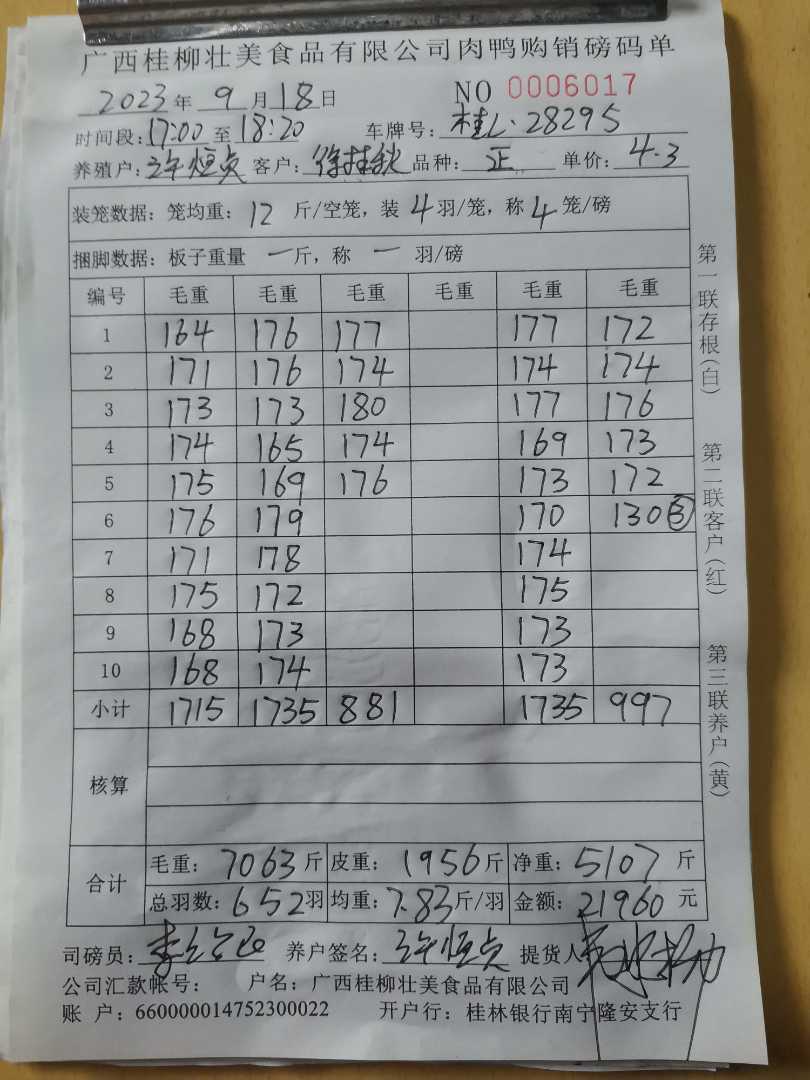 广西桂柳壮美食品有限公司肉鸭购销磅码单
2023年 9月18日 NO 0006017
时间段: 17:00 至 18:20 车牌号: 桂L·28295
养殖户: 许恒贞 客户: 徐桂秋 品种: 正 单价: 4.3
装笼数据: 笼均重: 12 斤/空笼, 装 4 羽/笼, 称 4 笼/磅
捆脚数据: 板子重量 一 斤, 称 一 羽/磅
编号 毛重 毛重 毛重 毛重 毛重 毛重
1 164 176 177 177 172
2 171 176 174 174 174
3 173 173 180 177 176
4 174 165 174 169 173
5 175 169 176 173 172
6 176 179 170 130③
7 171 178 174
8 175 172 175
9 168 173 173
10 168 174 173
小计 1715 1735 881 1735 997
核算
合计 毛重: 7063 斤 皮重: 1956 斤 净重: 5107 斤
总羽数: 652 羽 均重: 7.83 斤/羽 金额: 21960 元
司磅员: 养户签名: 许恒贞 提货人
公司汇款帐号: 户名: 广西桂柳壮美食品有限公司
账 户: 660000014752300022 开户行: 桂林银行南宁隆安支行
第一联存根(白) 第二联客户(红) 第三联养户(黄)